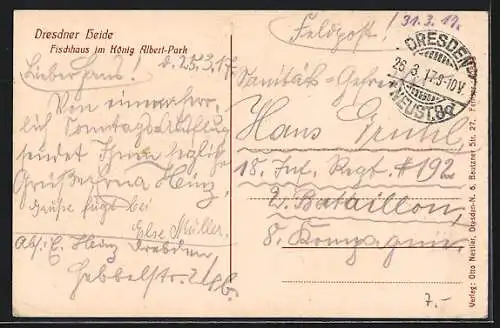 Dresdner Heide
Fischhaus im König Albert-Park
d. 25.3.17.
Lieber Hans!
Von einem herr-
lich Sonntagsausflug
sendet Ihnen herzliche
Grüße Erna Heinz,
Grüße fügt bei
Else Müller.
Abs: E. Heinz Dresden,
Hebbelstr.
Feldpost!
31.3.17.
DRESDEN
26.3.17.9-10V
NEUST.
Sanitäts-Gefr.
Hans
18. Inf. Regt. # 192
2. Bataillon,
8. Kompagnie
7.-
Verlag: Otto Nestler, Dresden-N. 6, Bautzner Str. 27.